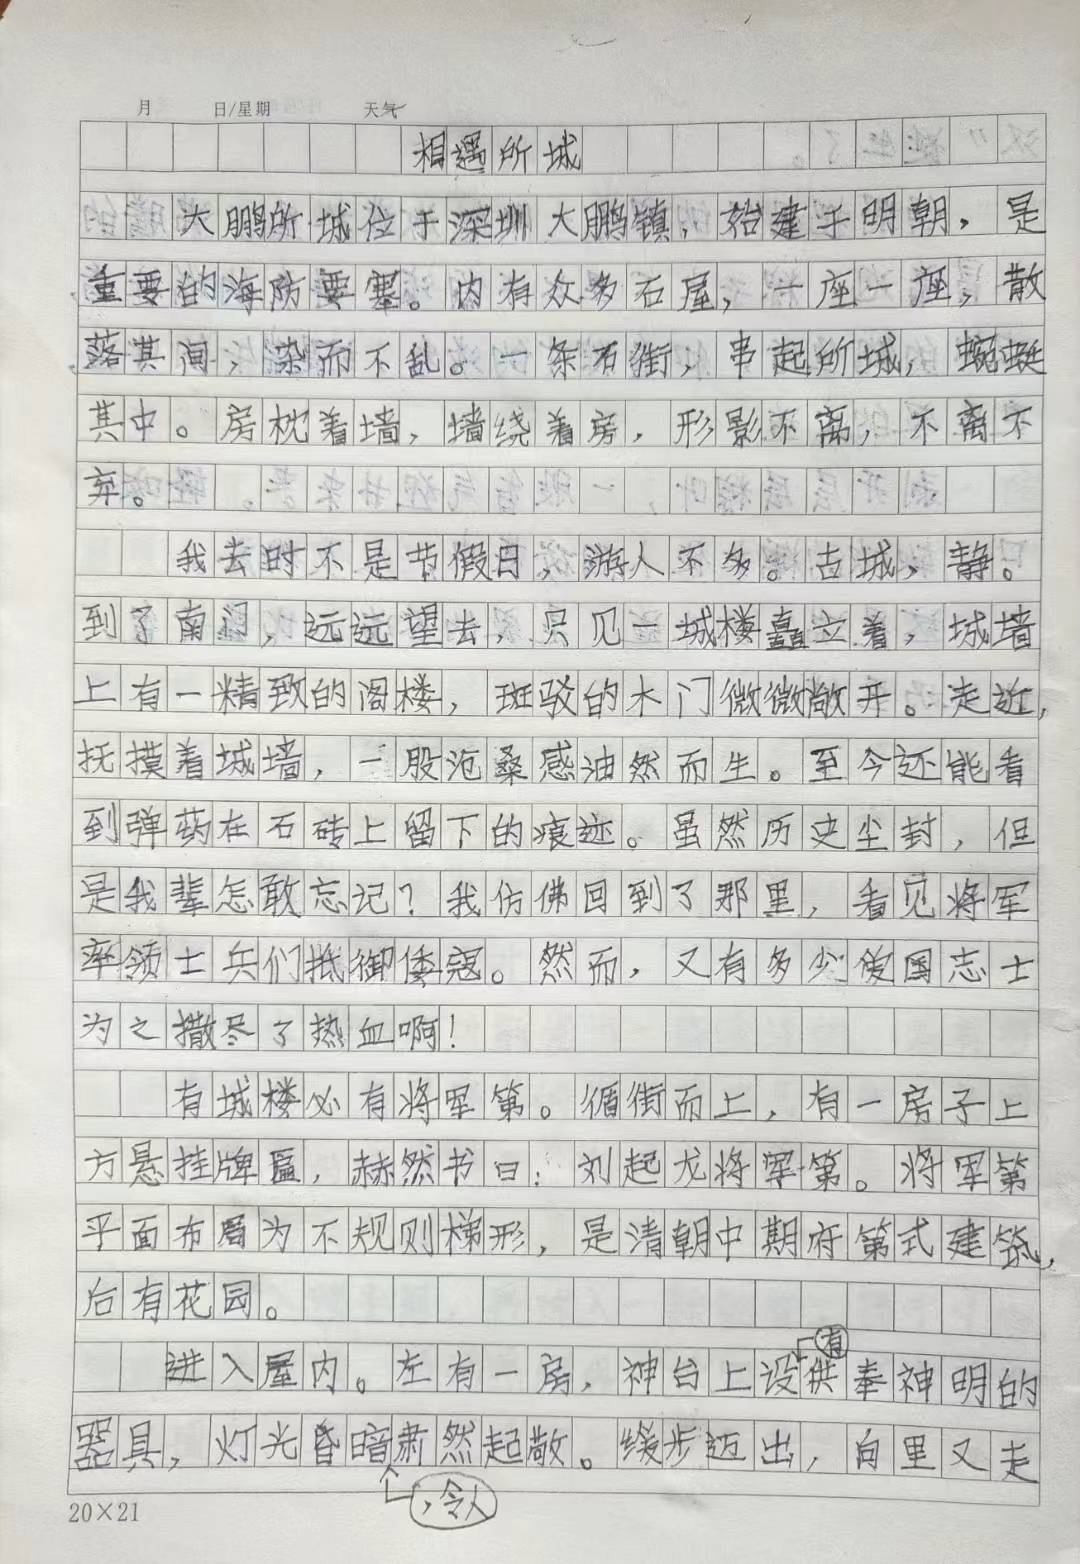 月 日/星期 天气
相遇所城
大鹏所城位于深圳大鹏镇,始建于明朝,是
重要的海防要塞。内有众多石屋,一座一座,散
落其间,杂而不乱。一条石街,串起所城,蜿蜒
其中。房枕着墙,墙绕着房,形影不离,不离不
弃。
我去时不是节假日,游人不多。古城,静。
到了南门,远远望去,只见一城楼矗立着,城墙
上有一精致的阁楼,斑驳的木门微微敞开。走近,
抚摸着城墙,一股沧桑感油然而生。至今还能看
到弹药在石砖上留下的痕迹。虽然历史尘封,但
是我辈怎敢忘记?我仿佛回到了那里,看见将军
率领士兵们抵御倭寇。然而,又有多少爱国志士
为之撒尽了热血啊!
有城楼必有将军第。循街而上,有一房子上
方悬挂牌匾,赫然书曰:刘起龙将军第。将军第
平面布局为不规则梯形,是清朝中期府第式建筑,
后有花园。
进入屋内。左有一房,神台上设有供奉神明的
器具,灯光昏暗,令人肃然起敬。缓步迈出,向里又走
20×21